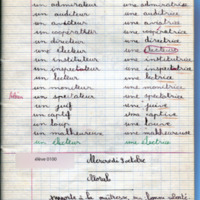 un admirateur une admiratrice
un auditeur une auditrice
un aviateur une aviatrice
un coopérateur une coopératrice
un directeur une directrice
un électeur une électrice
un instituteur une institutrice
un inspecteur une inspectrice
un lecteur une lectrice
un moniteur une monitrice
un spectateur une spectatrice
un juif une juive
un captif une captive
un loup une louve
un malheureux une malheureuse
un électeur une électrice
élève 0100
Mercredi 3 octobre
Morale